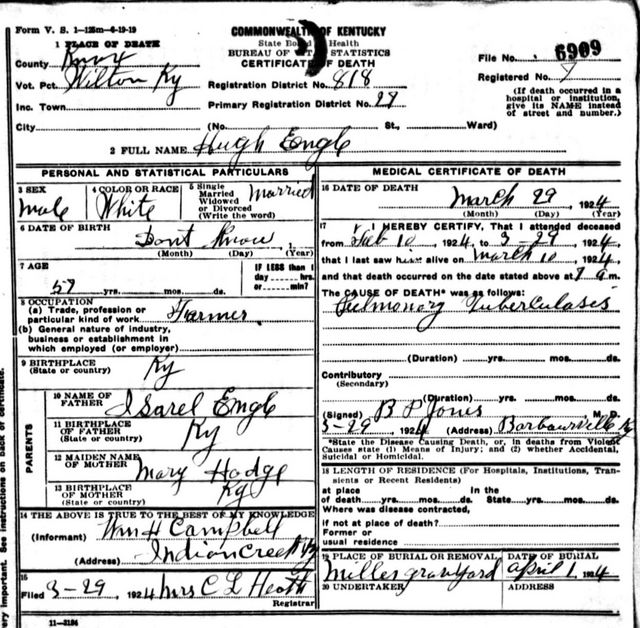 Form V. S. 1-125m-6-19-19
COMMONWEALTH OF KENTUCKY
State Board of Health
BUREAU OF VITAL STATISTICS
CERTIFICATE OF DEATH
1 PLACE OF DEATH
County Knox
Vot. Pct. Wilton Ky
Inc. Town
City
Registration District No. 818
Primary Registration District No. 28
(No. St., Ward)
File No. 6909
Registered No. 7
(If death occurred in a
hospital or institution,
give its NAME instead
of street and number.)
2 FULL NAME Hugh Engle
PERSONAL AND STATISTICAL PARTICULARS
3 SEX
male
4 COLOR OR RACE
White
5 Single
Married
Widowed
or Divorced
(Write the word)
Married
6 DATE OF BIRTH
Dont Know, 1
(Month) (Day) (Year)
7 AGE
57
yrs. mos. ds.
IF LESS than 1
day hrs.
or min?
8 OCCUPATION
(a) Trade, profession or
particular kind of work Farmer
(b) General nature of industry,
business or establishment in
which employed (or employer)
9 BIRTHPLACE
(State or country) Ky
PARENTS
10 NAME OF
FATHER Isarel Engle
11 BIRTHPLACE
OF FATHER
(State or country) Ky
12 MAIDEN NAME
OF MOTHER Mary Hodge
13 BIRTHPLACE
OF MOTHER
(State or country) Ky
14 THE ABOVE IS TRUE TO THE BEST OF MY KNOWLEDGE
(Informant) Wm H Campbell
(Address) Indian Creek Ky
15
Filed 3-29, 1924 Mrs C L Heath
Registrar
11-3184
MEDICAL CERTIFICATE OF DEATH
16 DATE OF DEATH
March 29, 1924
(Month) (Day) (Year)
17 I HEREBY CERTIFY, That I attended deceased
from Feb 10, 1924, to 3-29, 1924,
that I last saw him alive on March 10, 1924,
and that death occurred on the date stated above at 9 a m.
The CAUSE OF DEATH* was as follows:
Pulmonary Tuberculasis
(Duration) yrs. mos. ds.
Contributory
(Secondary)
(Duration) yrs. mos. ds.
(Signed) B P Jones M. D.
3-29, 1924 (Address) Barbourville Ky
*State the Disease Causing Death, or, in deaths from Violent
Causes state (1) Means of Injury; and (2) whether Accidental,
Suicidal or Homicidal.
18 LENGTH OF RESIDENCE (For Hospitals, Institutions, Tran-
sients or Recent Residents)
at place In the
of death yrs. mos. ds. State yrs. mos. ds.
Where was disease contracted,
if not at place of death?
Former or
usual residence
19 PLACE OF BURIAL OR REMOVAL
Milles gravyard
DATE OF BURIAL
April 1, 1924
20 UNDERTAKER
ADDRESS
ery important. See instructions on back of certificate.